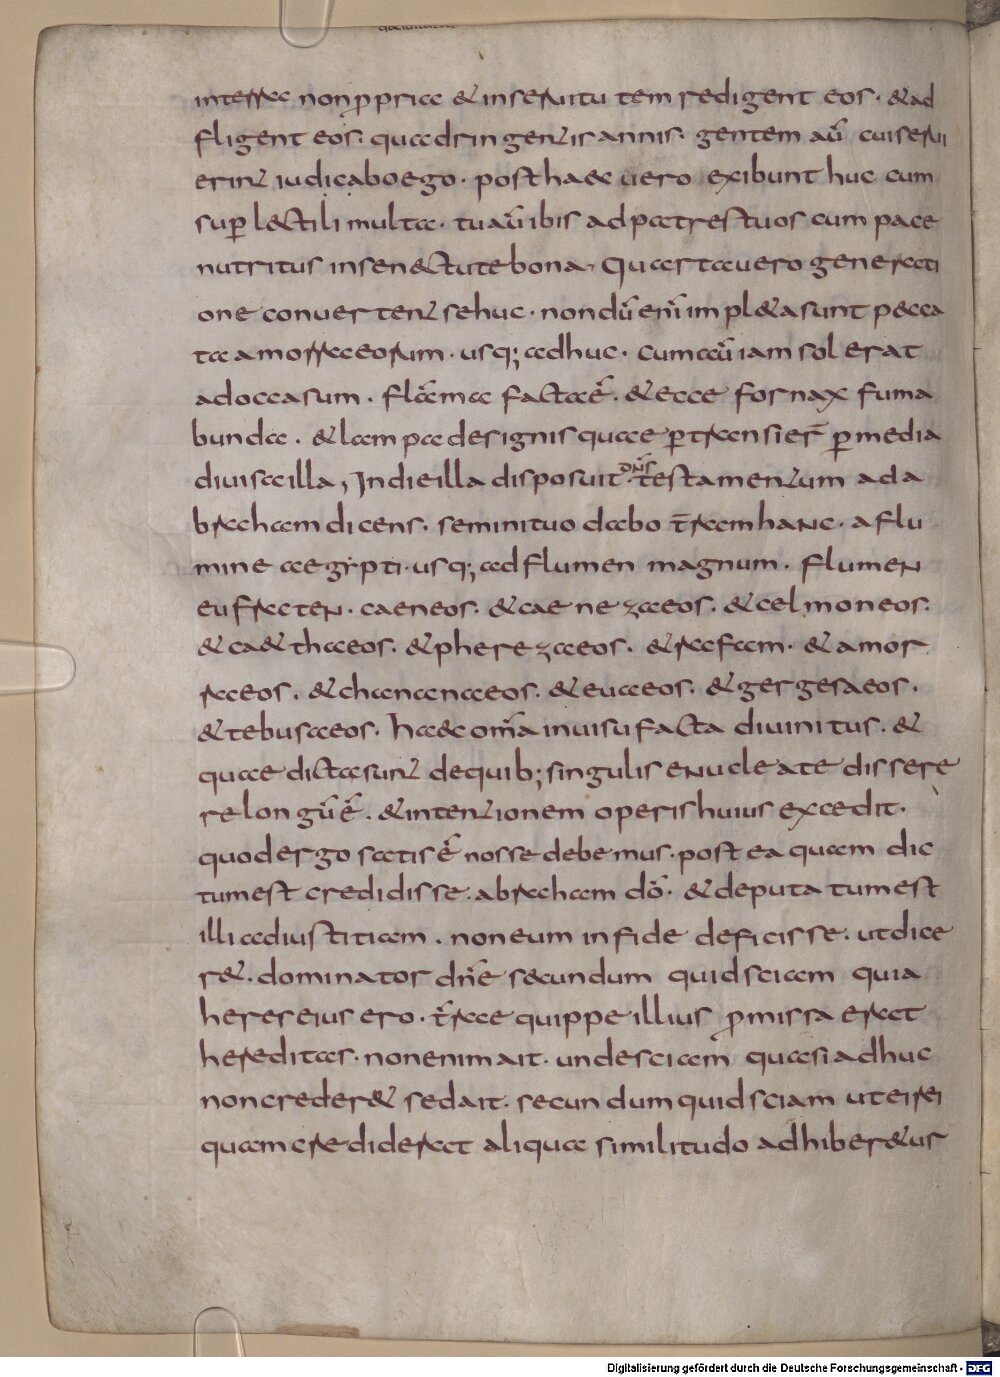 in terra non ꝓpria & in seruitutem redigent eos · & ad
fligent eos · quadringentis annis · gentem aū cui serui
erint iudicabo ego · post haec uero exibunt huc cum
suꝑlectili multa · tu aū ibis ad patres tuos cum pace
nutritus in senectute bona · Quarta uero generati
one conuertent se huc · nondū enī impl&a sunt pecca
ta amorraeorum · usq; adhuc · cum aū iam sol erat
ad occasum · flāma facta ē · & ecce fornax fuma
bunda · & lampades ignis quae ꝑtransier̄ ꝑ media
diuisa illa , In die illa disposuit dn̄s testamentum ad a
braham dicens · semini tuo dabo t̄ram hanc · a flu
mine aegypti · usq; ad flumen magnum · flumen
eufraten · caeneos · & cenezaeos · & celmoneos ·
& ca&thaeos · & pherezaeos · & rafam · & amor
raeos · & chananaeos · & euaeos · & gergesaeos ·
& iebusaeos · haec om̄a in uisu facta diuinitus · &
quae dicta sunt de quib; singulis enucleate dissere
re longū ē · & intentionem operis huius excedit ·
quod ergo satis ē nosse debemus · postea quam dic
tum est credidisse · abraham dō · & deputatum est
illi ad iustitiam · non eum in fide defecisse · ut dice
r& · dominator dn̄e secundum quid sciam quia
heres eius ero · t̄rae quippe illius ꝓmissa erat
hereditas · non enim ait · unde sciam quasi adhuc
non creder& sed ait · secundum quid sciam ut ei rei
quam crediderat aliqua similitudo adhiber&ur
Digitalisierung gefördert durch die Deutsche Forschungsgemeinschaft · DFG